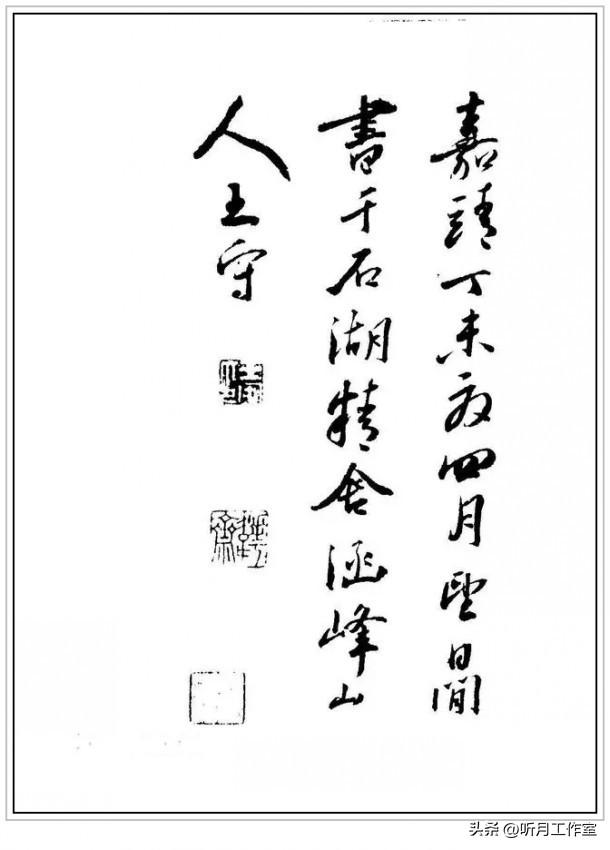 嘉靖丁未夏四月望日閒
書于石湖精舍涵峰山
人王守
头条 @听月工作室